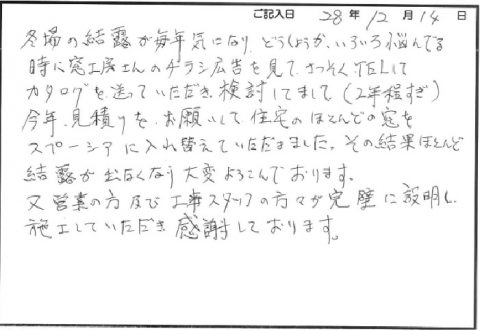 ご記入日 28年12月14日
冬場の結露が毎年気になり、どうしようか、いろいろ悩んでる
時に窓工房さんのチラシ広告を見て、さっそくTELして
カタログを送っていただき、検討してました(2年程すぎ)
今年、見積りを、お願いして住宅のほとんどの窓を
スペーシアに入れ替えていただきました。その結果ほとんど
結露が出なくなり大変よろこんでおります。
又営業の方及び工事スタッフの方々が完璧に説明し、
施工していただき感謝しております。